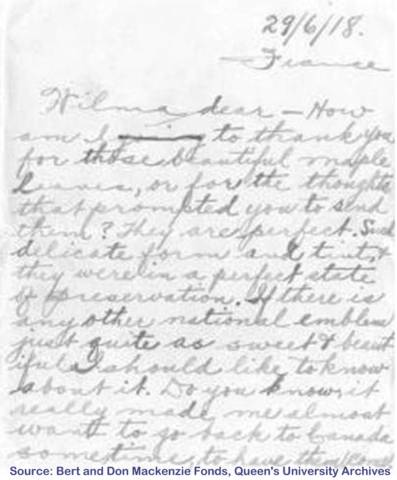 29/6/18.
France
Wilma dear - How
am I to thank you
for those beautiful maple
leaves, or for the thoughts
that prompted you to send
them? They are perfect. Such
delicate form and tint, &
they were in a perfect state
of preservation. If there is
any other national emblem
just quite as sweet & beaut
iful I should like to know
about it. Do you know, it
really made me almost
want to go back to Canada
sometime, to have them
Source: Bert and Don Mackenzie Fonds, Queen's University Archives